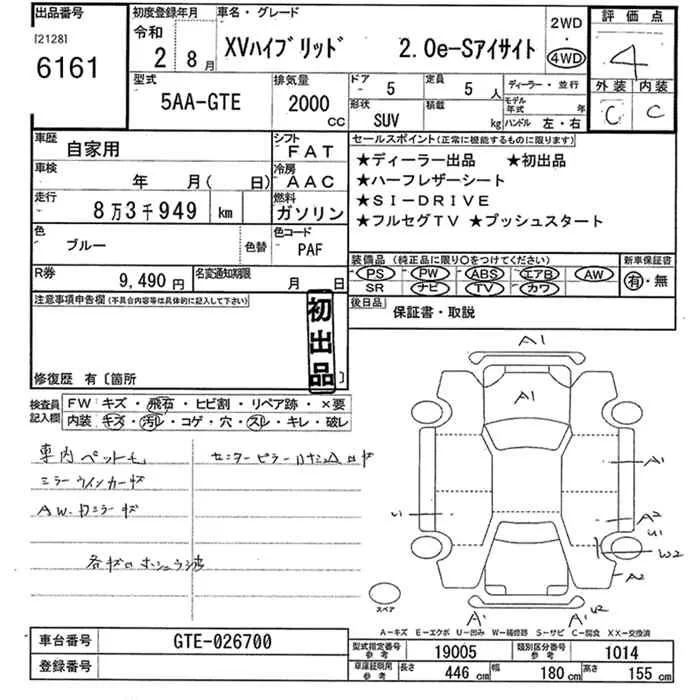 出品番号 初度登録年月 車名・グレード 評価点
[2128] 令和 XVハイブリッド 2.0e-Sアイサイト 2WD
6161 2 8月 4WD 4
型式 排気量 ドア 定員 ディーラー・並行 外装 内装
5AA-GTE 2000 CC 5 5人 モデル年式 年 C C
形状 SUV 積載 kg ハンドル 左・右
車歴 自家用 シフト FAT セールスポイント(正常に機能するものに限ります)
車検 年 月( 日) 冷房 AAC ★ディーラー出品 ★初出品
★ハーフレザーシート
走行 8万3千949 km 燃料 ガソリン ★SI-DRIVE
★フルセグTV ★プッシュスタート
色 ブルー 色替 色コード PAF
装備品(純正品に限り○をつけてください) 新車保証書
PS PW ABS エアB AW 有・無
SR ナビ TV カワ
R券 9,490円 名変通知期限 月 日
後日品 保証書・取説
注意事項申告欄(不具合内容等は具体的に記入して下さい)
初出品
修復歴 有〔箇所 〕
検査員記入欄 FW キズ・飛石・ヒビ割・リペア跡・×要
内装 キズ・汚レ・コゲ・穴・スレ・キレ・破レ
車内ペット毛
ミラーウインカーキズ
AW.
A1
A1
A1
A2
U1
U1
W2
A2
A1 A1 U2
スペア
A-キズ E-エクボ U-凹み W-補修跡 S-サビ C-腐食 XX-交換済
車台番号 GTE-026700
登録番号
型式指定番号 参考 19005 類別区分番号 参考 1014
車庫証明用 参考 長さ 446 cm 幅 180 cm 高さ 155 cm